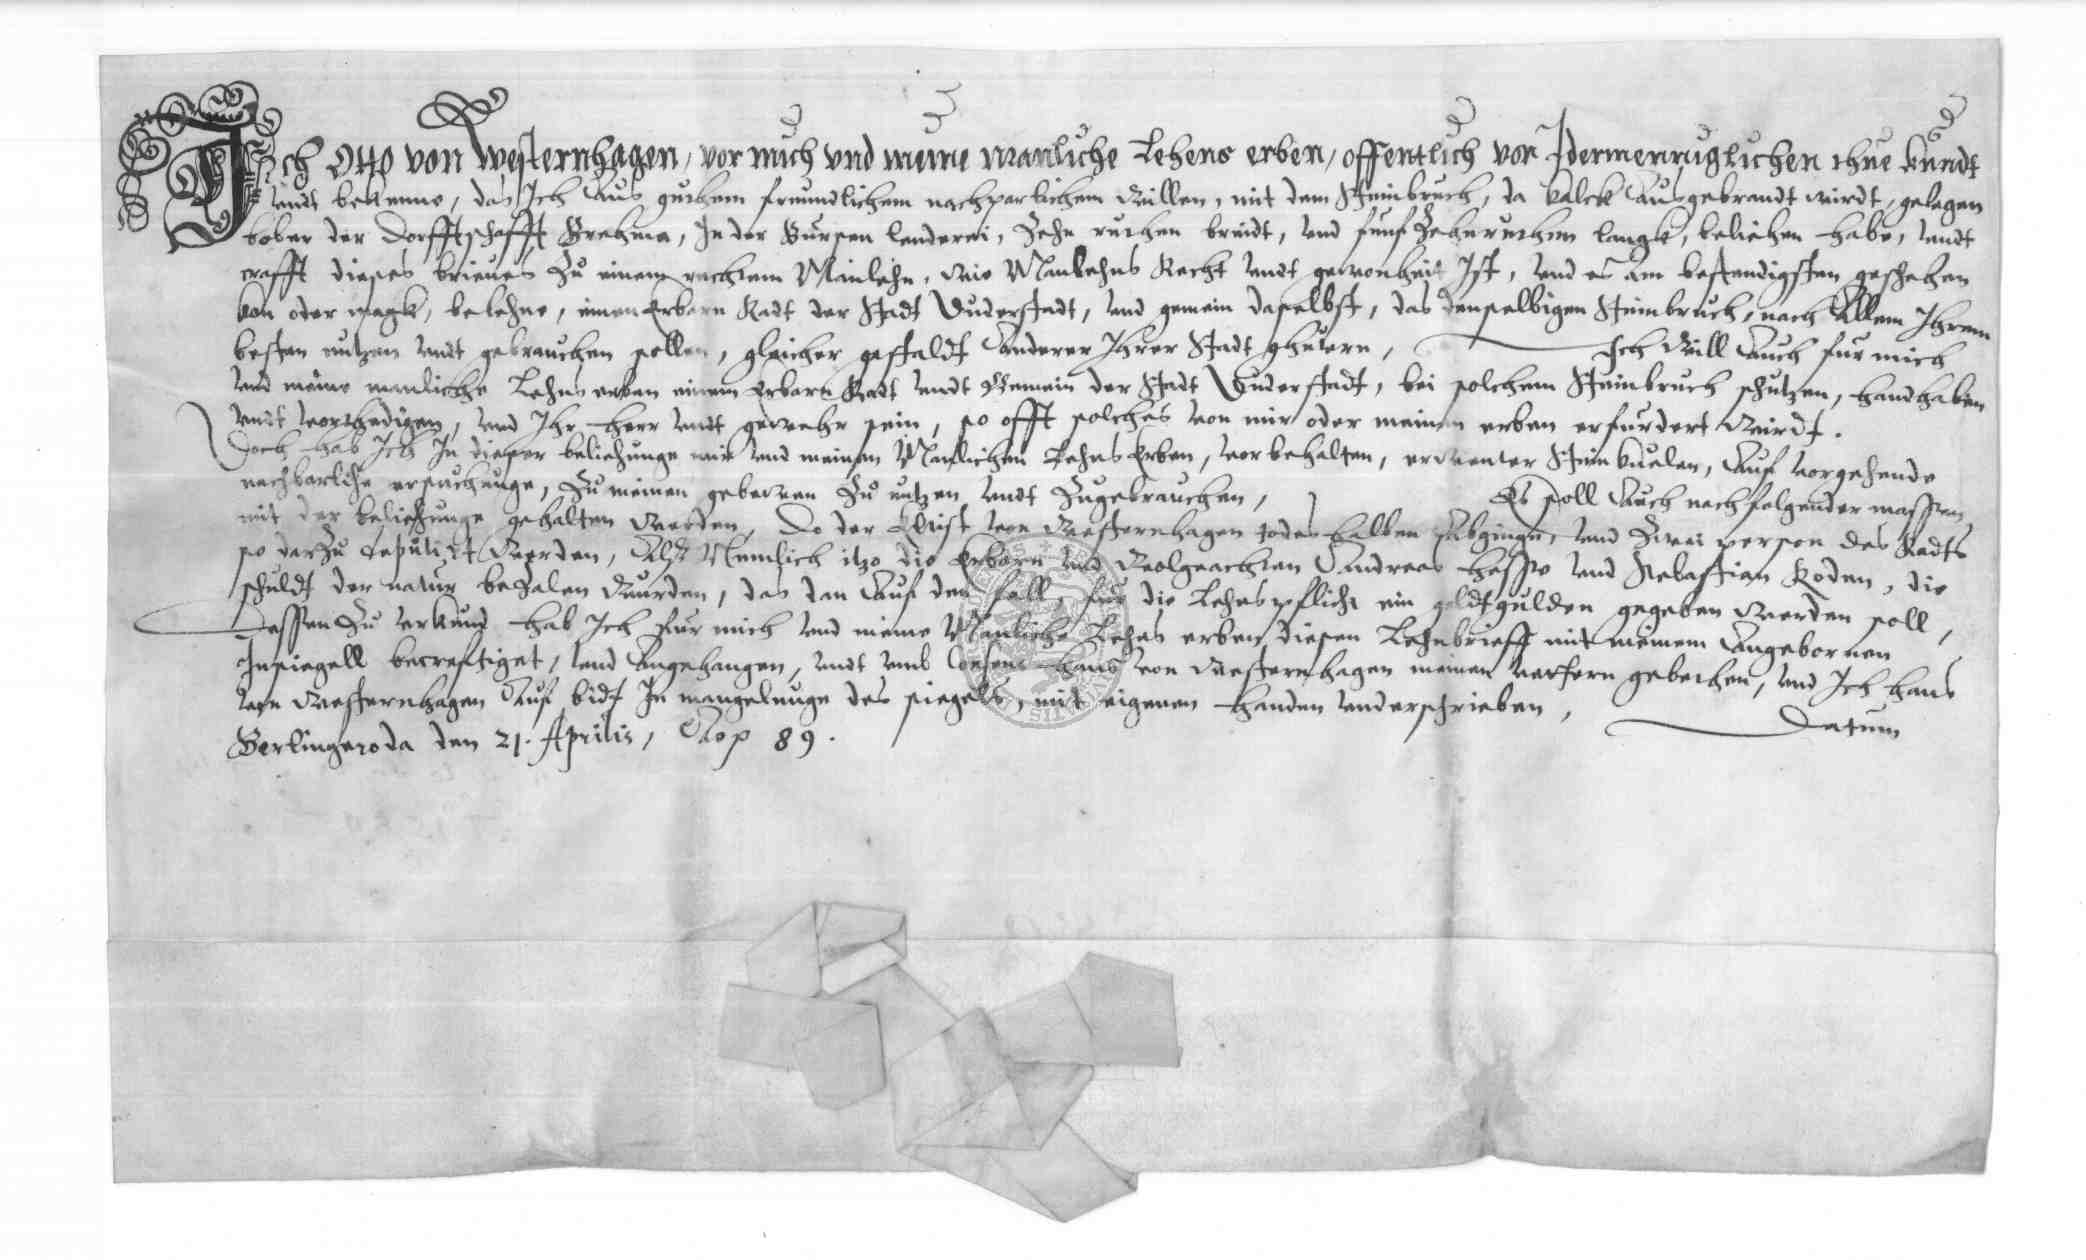 Ich Otto von Westernhagen, vor mich vnd meine manliche Lehens erben, offentlich vor Idermenniglichen thue kundt
vndt bekenne, das Ich aus guthem freundlichem nachparlichem willen, mit dem Steinbruch, da kalck ausgebrandt wirdt, gelegen
bober der Dorfftschafft Brehma, In der Bursen lenderei, Zehn ruthen breidt, vnd funf Zehn ruthen langk, beliehen habe, vndt
crafft dieses brieues Zu einem rechtem Manlehn, wie Manlehns Recht vndt gewonheit Ist, vnd es am bestendigsten geschehen
kon oder magk, belehne, einen Erbarn Radt der Stadt Duderstadt, vnd gemein daselbst, das denselbigen Steinbruch, nach allem Ihrem
besten nutzen vndt gebrauchen sollen, gleicher gestaldt anderer Ihrer Stadt ghutern, Ich will auch fur mich
vnd meine manliche Lehns erben einem Erbarn Radt vndt Gemein der Stadt Duderstadt, bei solchem Steinbruch schutzen, handhaben
vndt vorthedigen, vnd Ihr Herr vndt gewehr sein, so offt solches von mir oder meinen erben erfurdert wirdt.
Doch hab Ich In dieser beliehunge mir vnd meinen Manlichen Lehns Erben, vorbehalten, Steinkuelen, auf vorgehende
nachbarliche ersuchunge, Zu meinen gebewen Zu nutzen vndt Zugebrauchen, Es soll auch nachfolgender massen
mit der beliehunge gehalten werden, Do der Elist von Westernhagen todes halben abginge, vnd Zwei person des Radts
so darZu deputirt werden, Als Nemlich itzo die Erbarn vnd Wolgeachten Andreas Hesse vnd Sebastian Koden, die
schuldt der natur beZalen wurden, das dan auf den fall, fur die Lehns pflicht ein goldtgulden gegeben werden soll,
Dessen Zu vrkund hab Ich fur mich vnd meine Manliche Lehns erben diesen Lehnbrieff mit meinem Angebornen
Insiegell becreftiget, vnd Angehangen, vndt vmb Consens Hans von Westernhagen meinen vettern gebethen, vnd Ich Hans
von Westernhagen Auf bidt In mangelunge des siegels, mit eigenen Handen vnderschrieben, Datum
Berlingeroda den 21. Aprilis, Ao p 89.